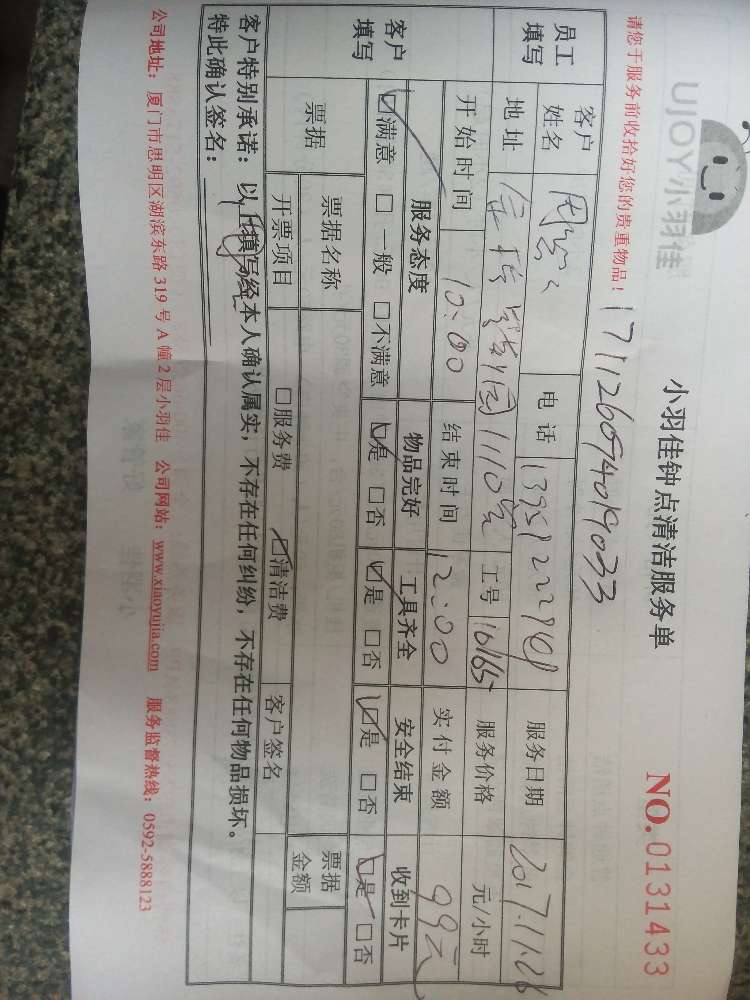 UJOY小羽佳
小羽佳钟点清洁服务单
NO. 0131433
请您于服务前收拾好您的贵重物品!
员工填写 客户姓名 电话 服务日期 2017.11.26
地址 1110室 工号 16165 服务价格 元/小时
开始时间 10:00 结束时间 12:00 实付金额 99元
客户填写 服务态度 物品完好 工具齐全 安全结束 收到卡片
☑满意 □一般 □不满意 ☑是 □否 ☑是 □否 ☑是 □否 ☑是 □否
票据 票据名称 □服务费 ☑清洁费 票据金额
开票项目 客户签名
客户特别承诺:以上填写经本人确认属实,不存在任何纠纷,不存在任何物品损坏。
特此确认签名:
公司地址:厦门市思明区湖滨东路319号A幢2层小羽佳 公司网站:www.xiaoyujia.com 服务监督热线:0592-5888123